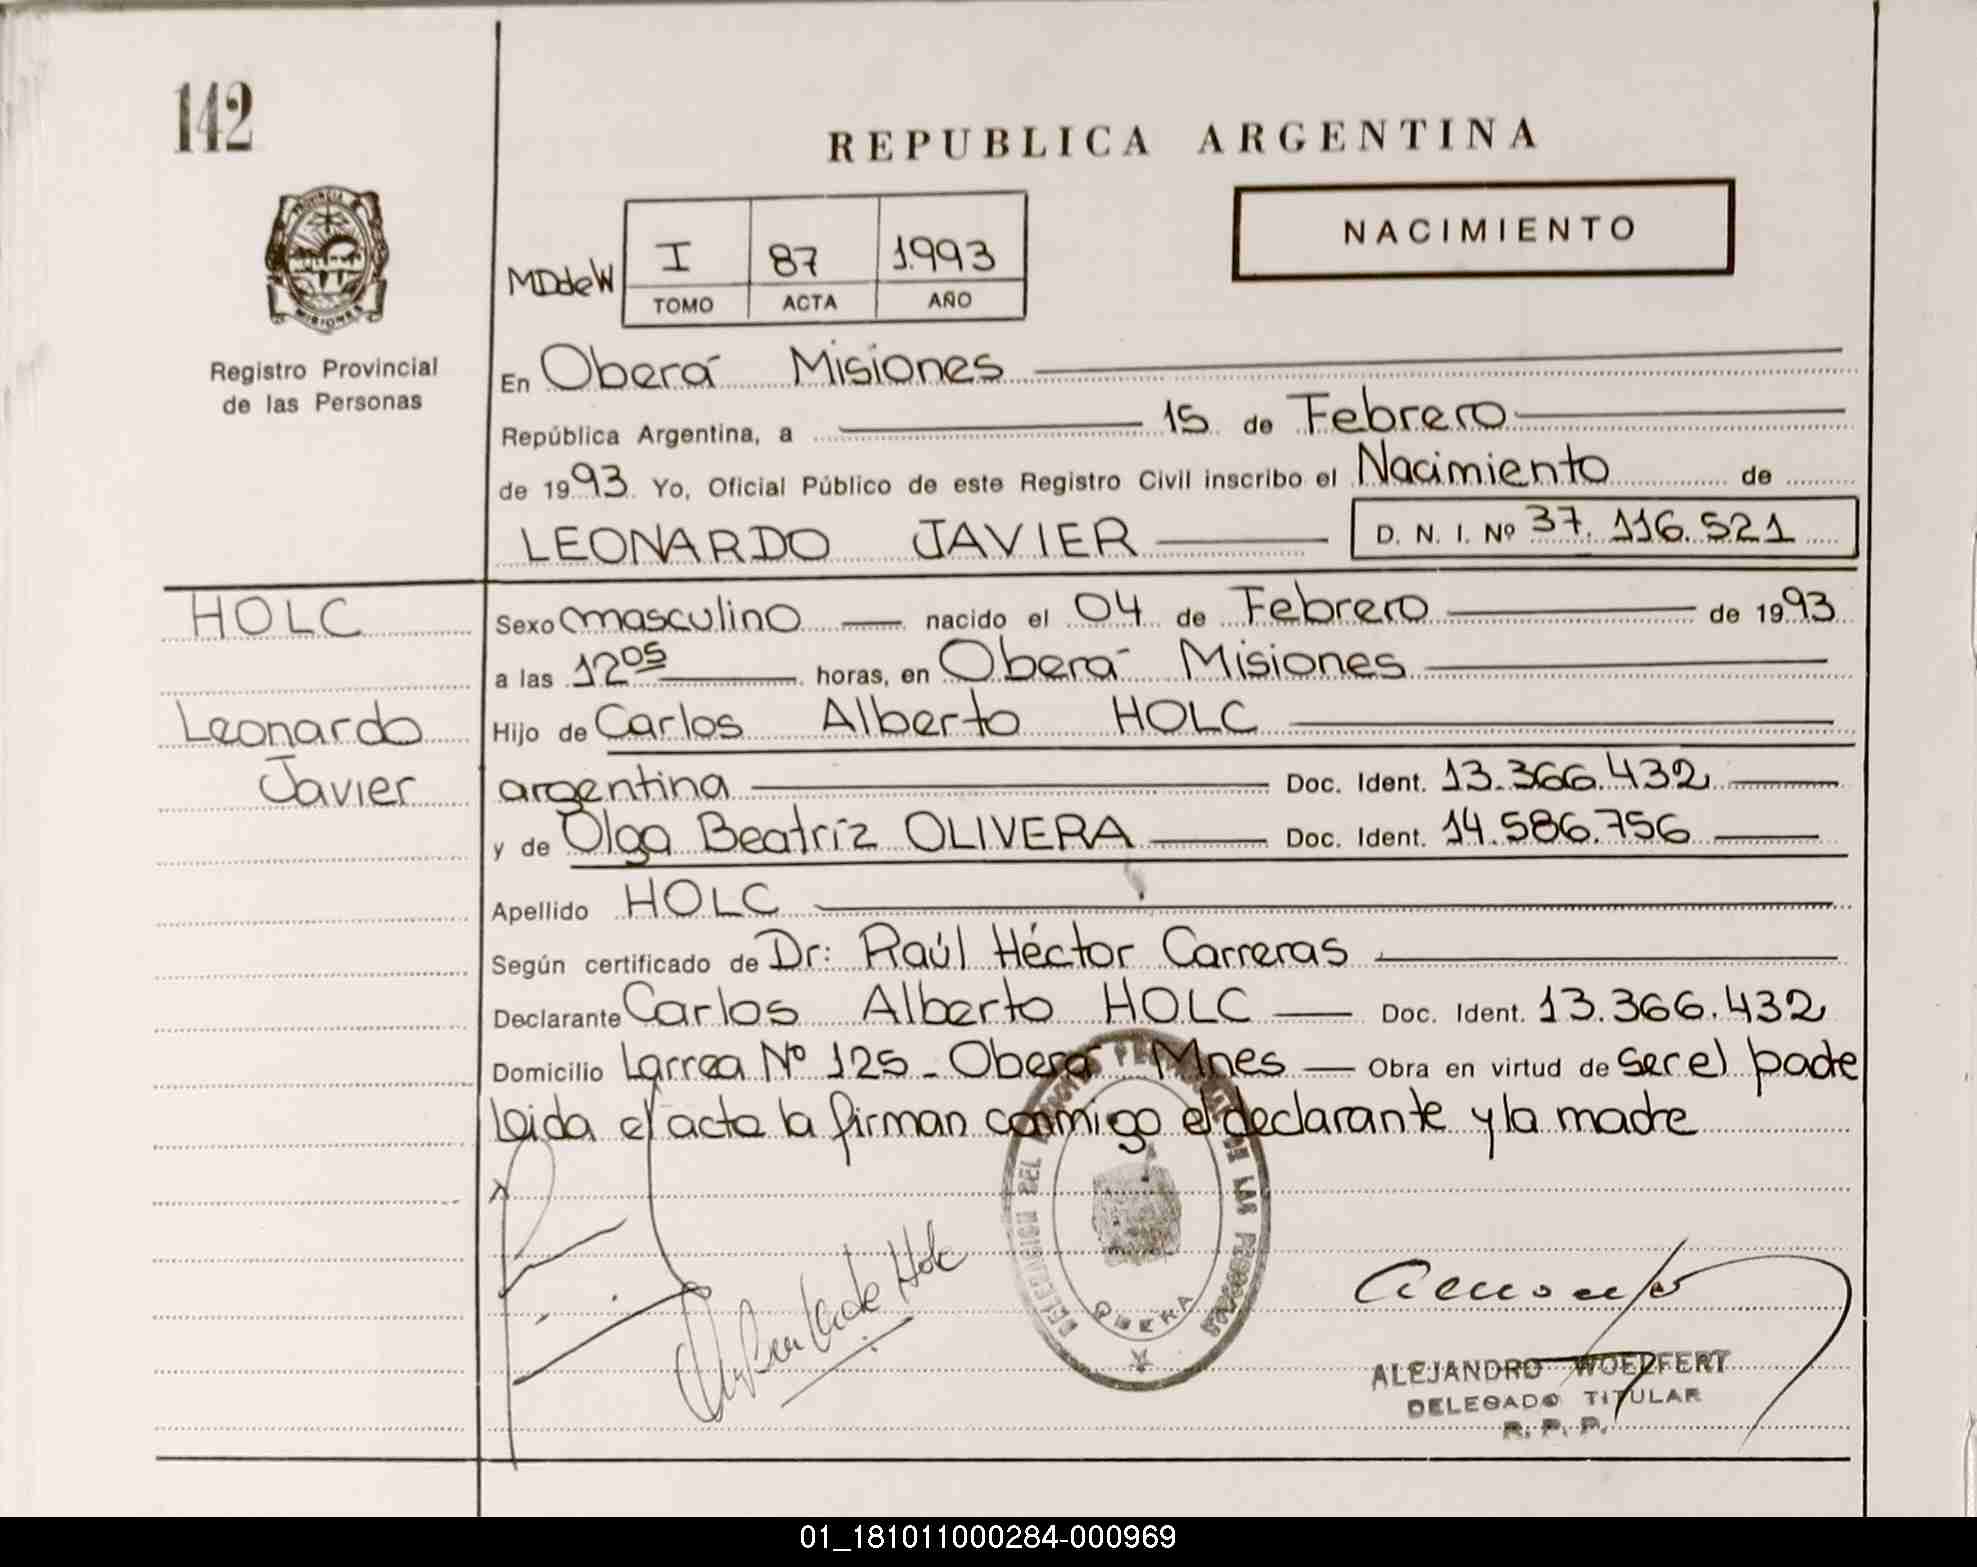 142
REPUBLICA ARGENTINA
NACIMIENTO
PROVINCIA DE
MISIONES
Registro Provincial
de las Personas
MDdeW
I 87 1.993
TOMO ACTA AÑO
En Oberá Misiones
República Argentina, a 15 de Febrero
de 1993 Yo, Oficial Público de este Registro Civil inscribo el Nacimiento de
LEONARDO JAVIER D. N. I. Nº 37.116.521
HOLC
Sexo masculino nacido el 04 de Febrero de 1993
a las 12 05 horas, en Oberá Misiones
Leonardo
Hijo de Carlos Alberto HOLC
Javier
argentina Doc. Ident. 13.366.432
y de Olga Beatríz OLIVERA Doc. Ident. 14.586.756
Apellido HOLC
Según certificado de Dr: Raúl Héctor Carreras
Declarante Carlos Alberto HOLC Doc. Ident. 13.366.432
Domicilio Larrea Nº 125 - Oberá Mnes Obra en virtud de ser el padre
leida el acta la firman conmigo el declarante y la madre
DELEGACION DEL DE LAS PERSONAS
OBERA
de Holc
ALEJANDRO WOELFERT
DELEGADO TITULAR
R. P. P.
01_181011000284-000969